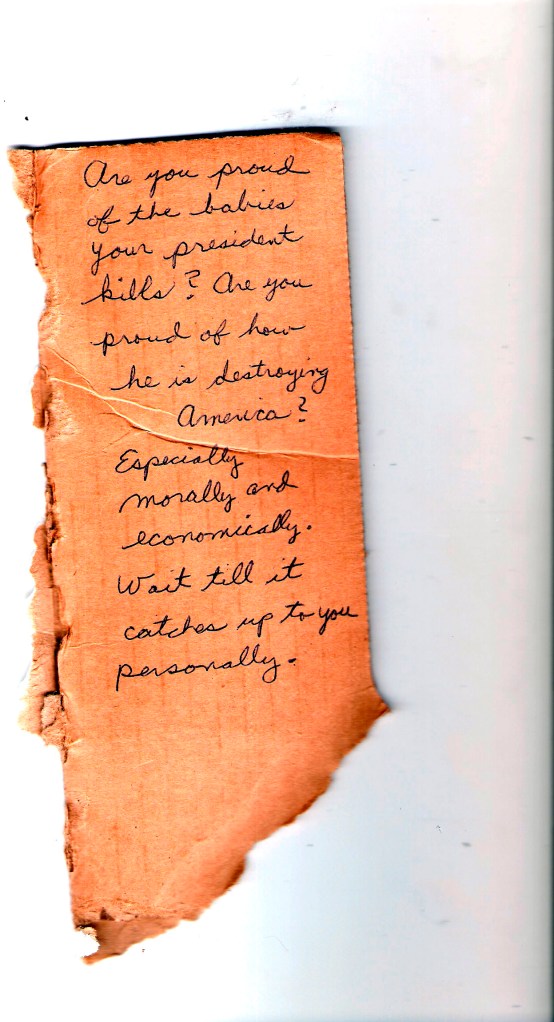 Are you proud
of the babies
your president
kills? Are you
proud of how
he is destroying
America?
Especially
morally and
economically.
Wait till it
catches up to you
personally.